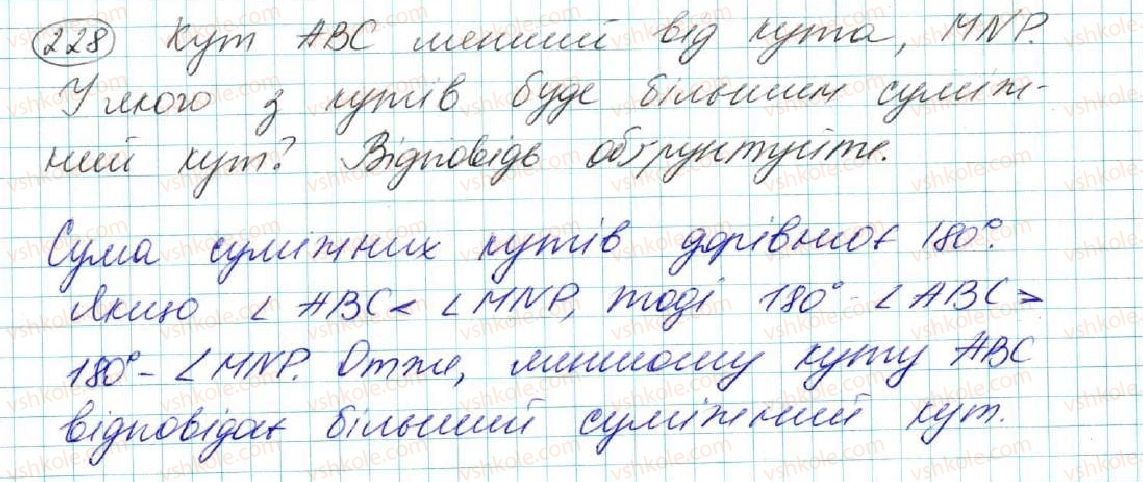 228 Кут ABC менший від кута, MNP.
У якого з кутів буде більшим суміж-
ний кут? Відповідь обґрунтуйте.
Сума суміжних кутів дорівнює 180°.
Якщо ∠ABC < ∠MNP, тоді 180° - ∠ABC >
180° - ∠MNP. Отже, меншому куту ABC
відповідає більший суміжний кут.